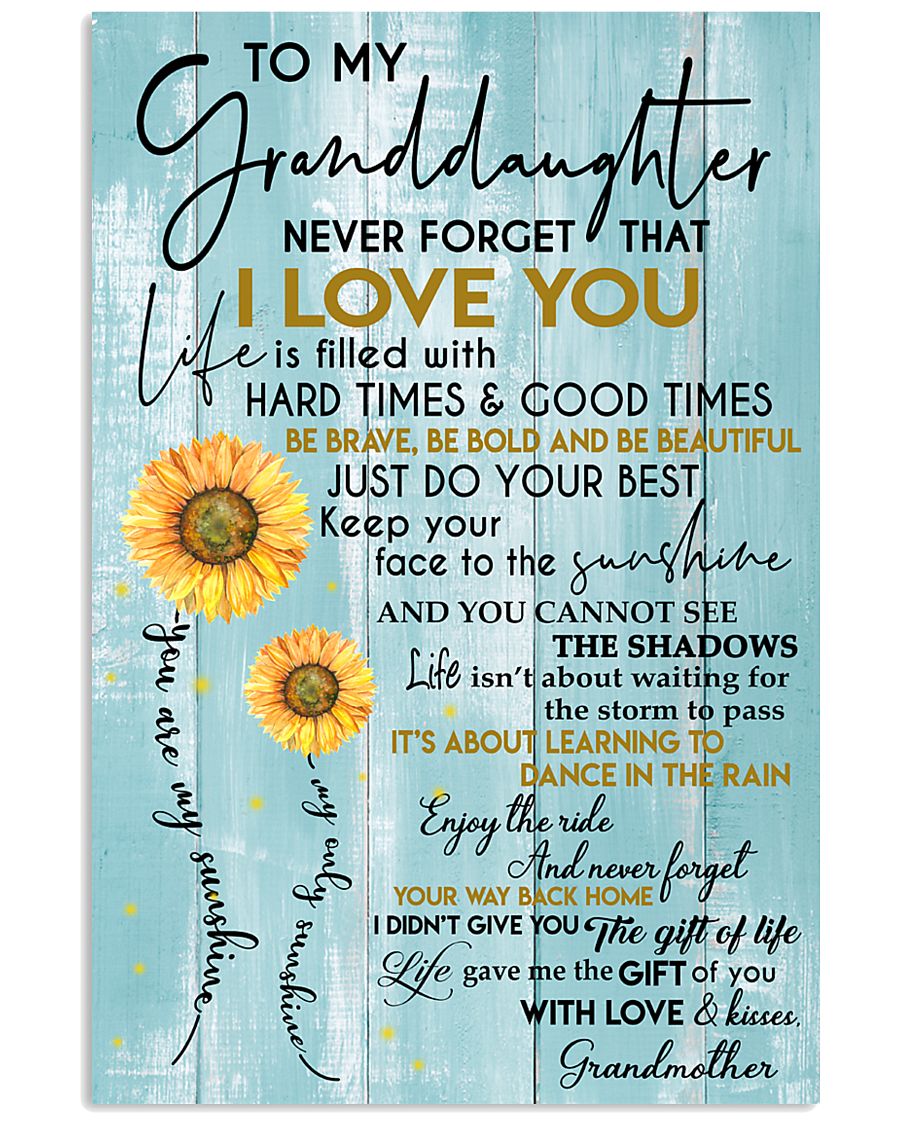 TO MY
Granddaughter
NEVER FORGET THAT
I LOVE YOU
Life is filled with
HARD TIMES & GOOD TIMES
BE BRAVE, BE BOLD AND BE BEAUTIFUL
JUST DO YOUR BEST
Keep your
face to the sunshine
AND YOU CANNOT SEE
THE SHADOWS
Life isn't about waiting for
the storm to pass
IT'S ABOUT LEARNING TO
DANCE IN THE RAIN
Enjoy the ride
And never forget
YOUR WAY BACK HOME
I DIDN'T GIVE YOU The gift of life
Life gave me the GIFT of you
WITH LOVE & kisses,
Grandmother
you are my sunshine
my only sunshine